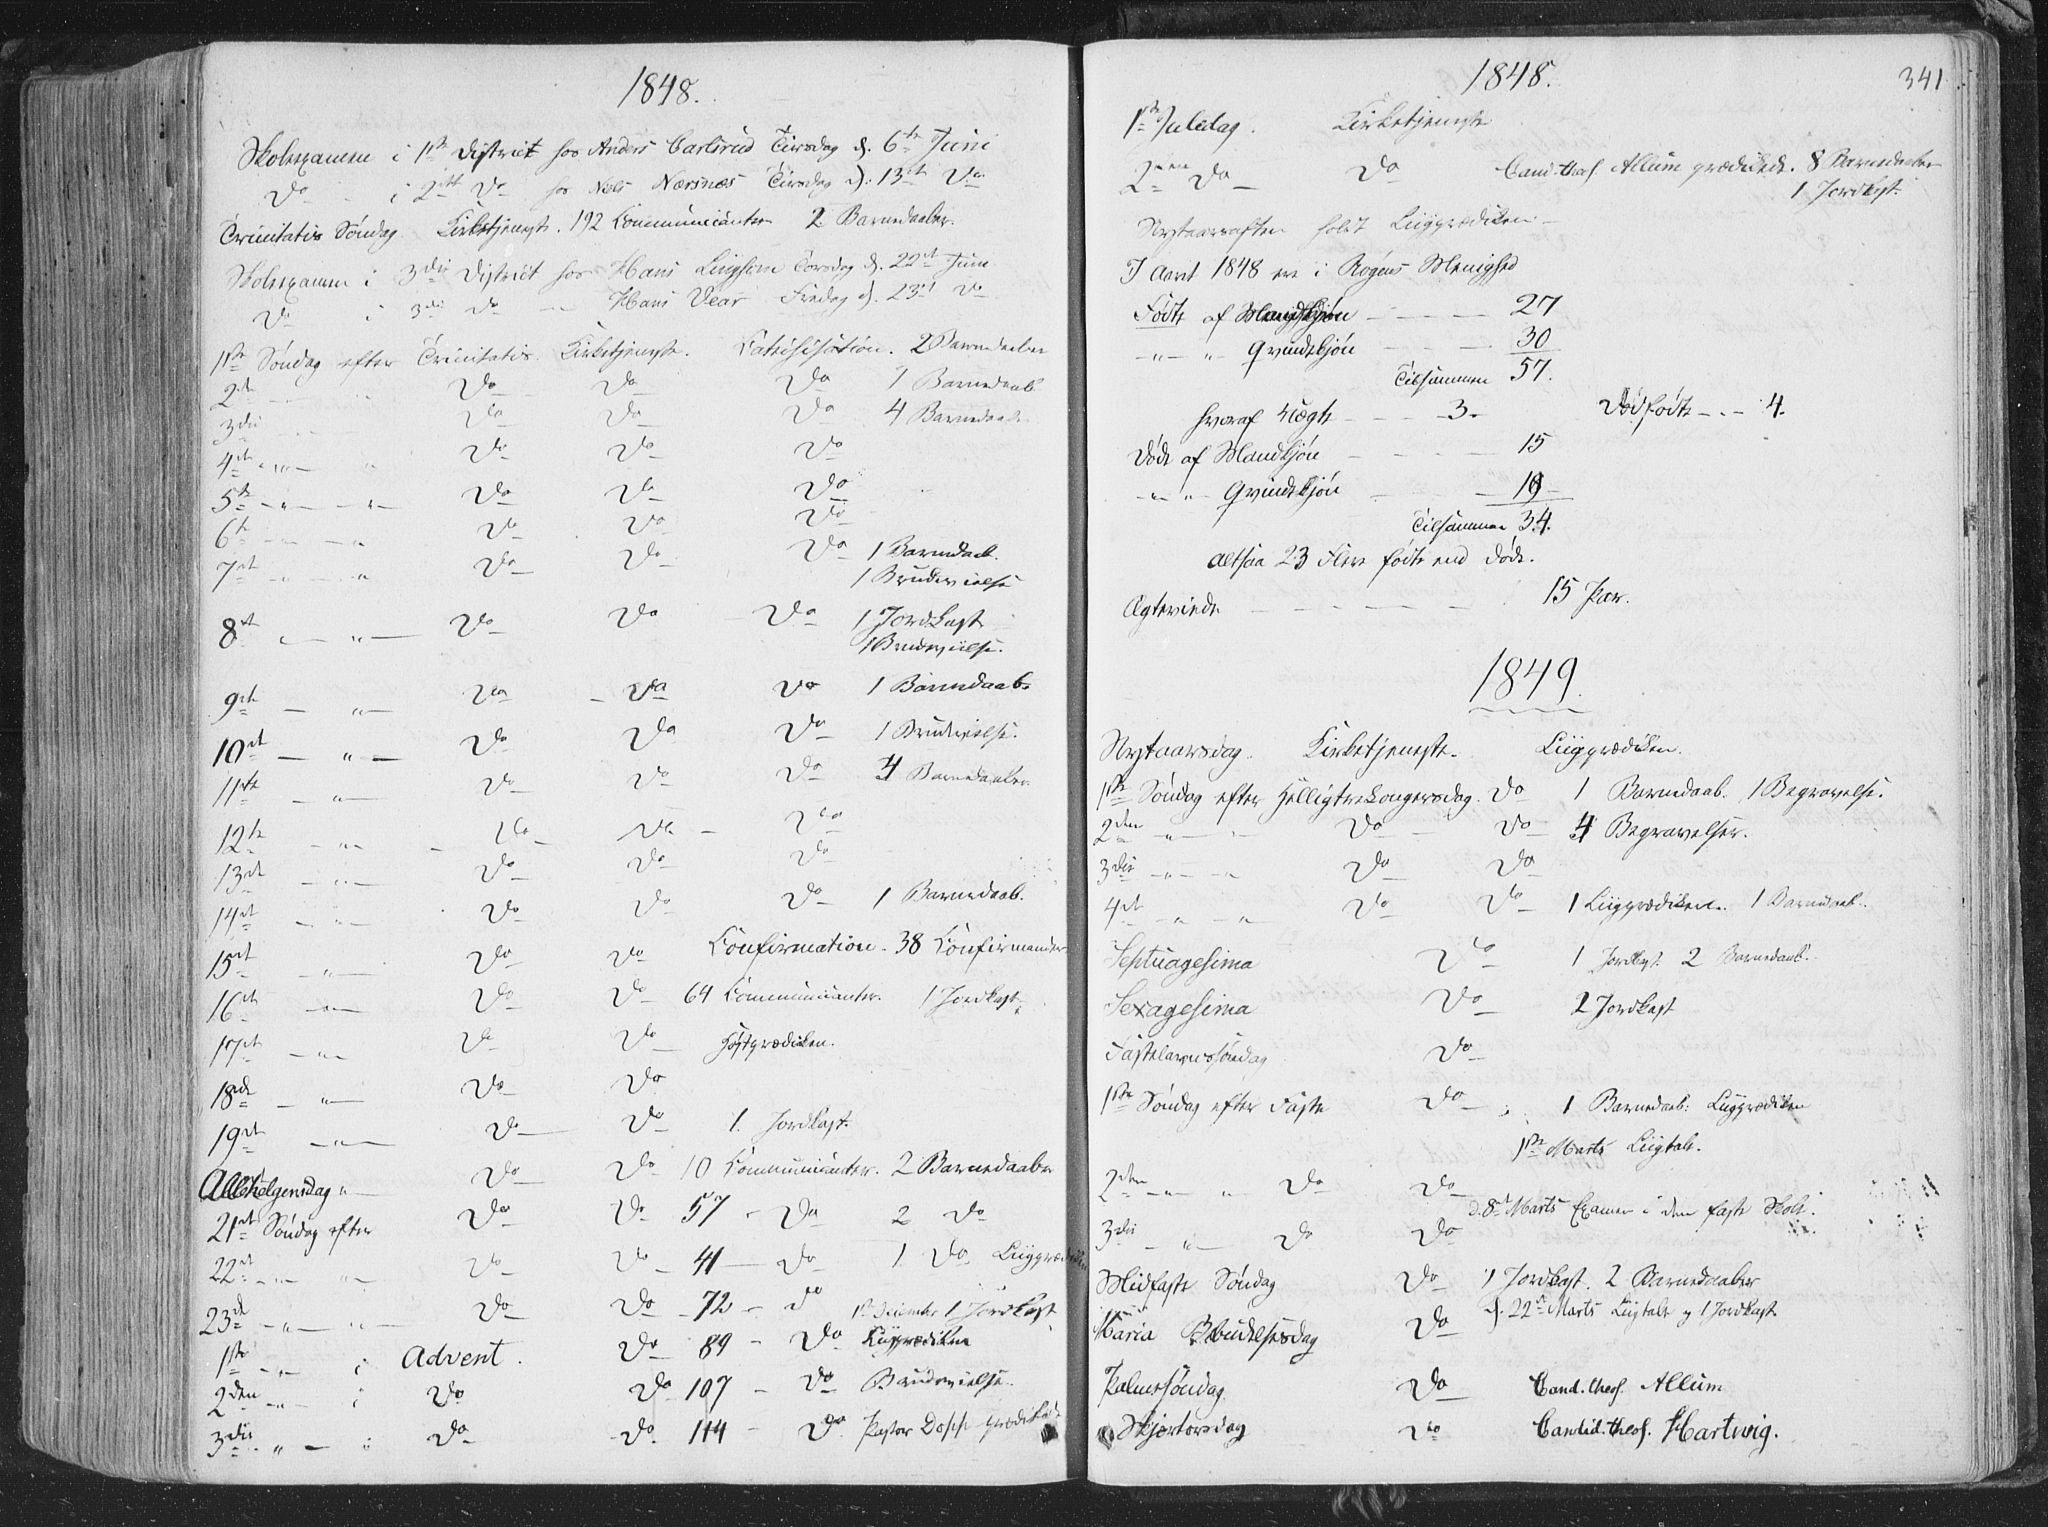 1848.
Skoleexamen i 1ste District hos Anders Carlsrud Tirsdag d. 6te Juni
Do i 2det Do hos Nels Nærsnæs Tirsdag d. 13de Do
Trinitatis Søndag Kirketjeneste. 192 Communicanter 2 Barnedaaber.
Skoleexamen i 3die District hos Hans Torsdag d. 22de Juni
Do i 3die Do — Hans Fredag d. 23d Do
1ste Søndag efter Trinitatis. Kirketjeneste. Catechisation. 2 Barnedaaber
2den Do Do Do 1 Barnedaab
3die Do Do Do 4 Barnedaab
4de " Do Do Do
5te " " Do Do Do
6te " Do Do Do
7de " " Do Do Do 1 Barnedaab.
1 Brudevielse
8de " Do Do Do 1 Jordkast
1 Brudevielse.
9de — " — Do Do Do 1 Barnedaab
10de — " — Do Do Do 1 Brudevielse.
11te — " — Do Do Do 4 Barnedaaber
12te — " — Do Do Do
13de — " — Do Do Do
14de — " — Do Do Do 1 Barnedaab.
15de — " — Do Do Confirmation. 38 Confirmander
16de — " — Do Do 64 Communicanter. 1 Jordkast
17de — " — Do Do Høstprædiken.
18de — " — Do Do
19de — " — Do Do 1. Jordkast.
Allehelgensdag " — Do Do 10 Communicanter. 2 Barnedaaber
21de Søndag efter Do Do 57 - Do 2 Do
22de " " Do Do 41 — Do 1 Do Liigprædiken
23de — " " Do Do 72 - do 1ste December 1 Jordkast
1ste " i Advent. Do 89 - Do Liigprædiken
2den — " — i Do Do 107 - Do Brudevielse.
3die " — i Do Do 114 - Do. Pastor Dopp prædikede
1848. 341
1ste Juledag. Kirketjeneste
2den Do Do Cand. theol. Allum prædikede. 8 Barnedaaber
1 Jordkast.
Nytaarsaften holdt Liigprædiken.
I Aaret 1848 ere i Røgens Menighed
Fødte af Mandkjøn 27
" " Qvindekjøn 30
Tilsammen 57.
hvoraf Uægte 3. Dødfødte — 4.
Døde af Mandkjøn 15
" " Qvindekjøn 19
Tilsammen 34.
Altsaa 23 Flere fødte end døde.
Ægteviede 15 Par.
1849.
Nytaarsdag. Kirketjeneste. Liigprædiken.
1ste Søndag efter Helligtrekongersdag. Do 1 Barnedaab. 1 Begravelse.
2den " Do Do 4 Begravelser.
3die " " Do Do
4de " " Do Do 1 Liigprædiken. 1 Barnedaab.
Septuagesima Do 1 Jordkast. 2 Barnedaab.
Sexagesima Do 2 Jordkast
Fastelavnssøndag Do
1ste Søndag efter Faste Do 1 Barnedaab: Liigprædiken
1ste Marts Liigtale.
2den " " Do Do
d. 8de Marts Examen i den faste Skole.
3die — " — Do Do
Midfaste Søndag Do 1 Jordkast. 2 Barnedaaber
d. 22de Marts Liigtale og 1 Jordkast
Maria Bebudelsesdag Do
Palmesøndag Do Cand. theol. Allum
Skjertorsdag Do Candid. theol. Hartwig.